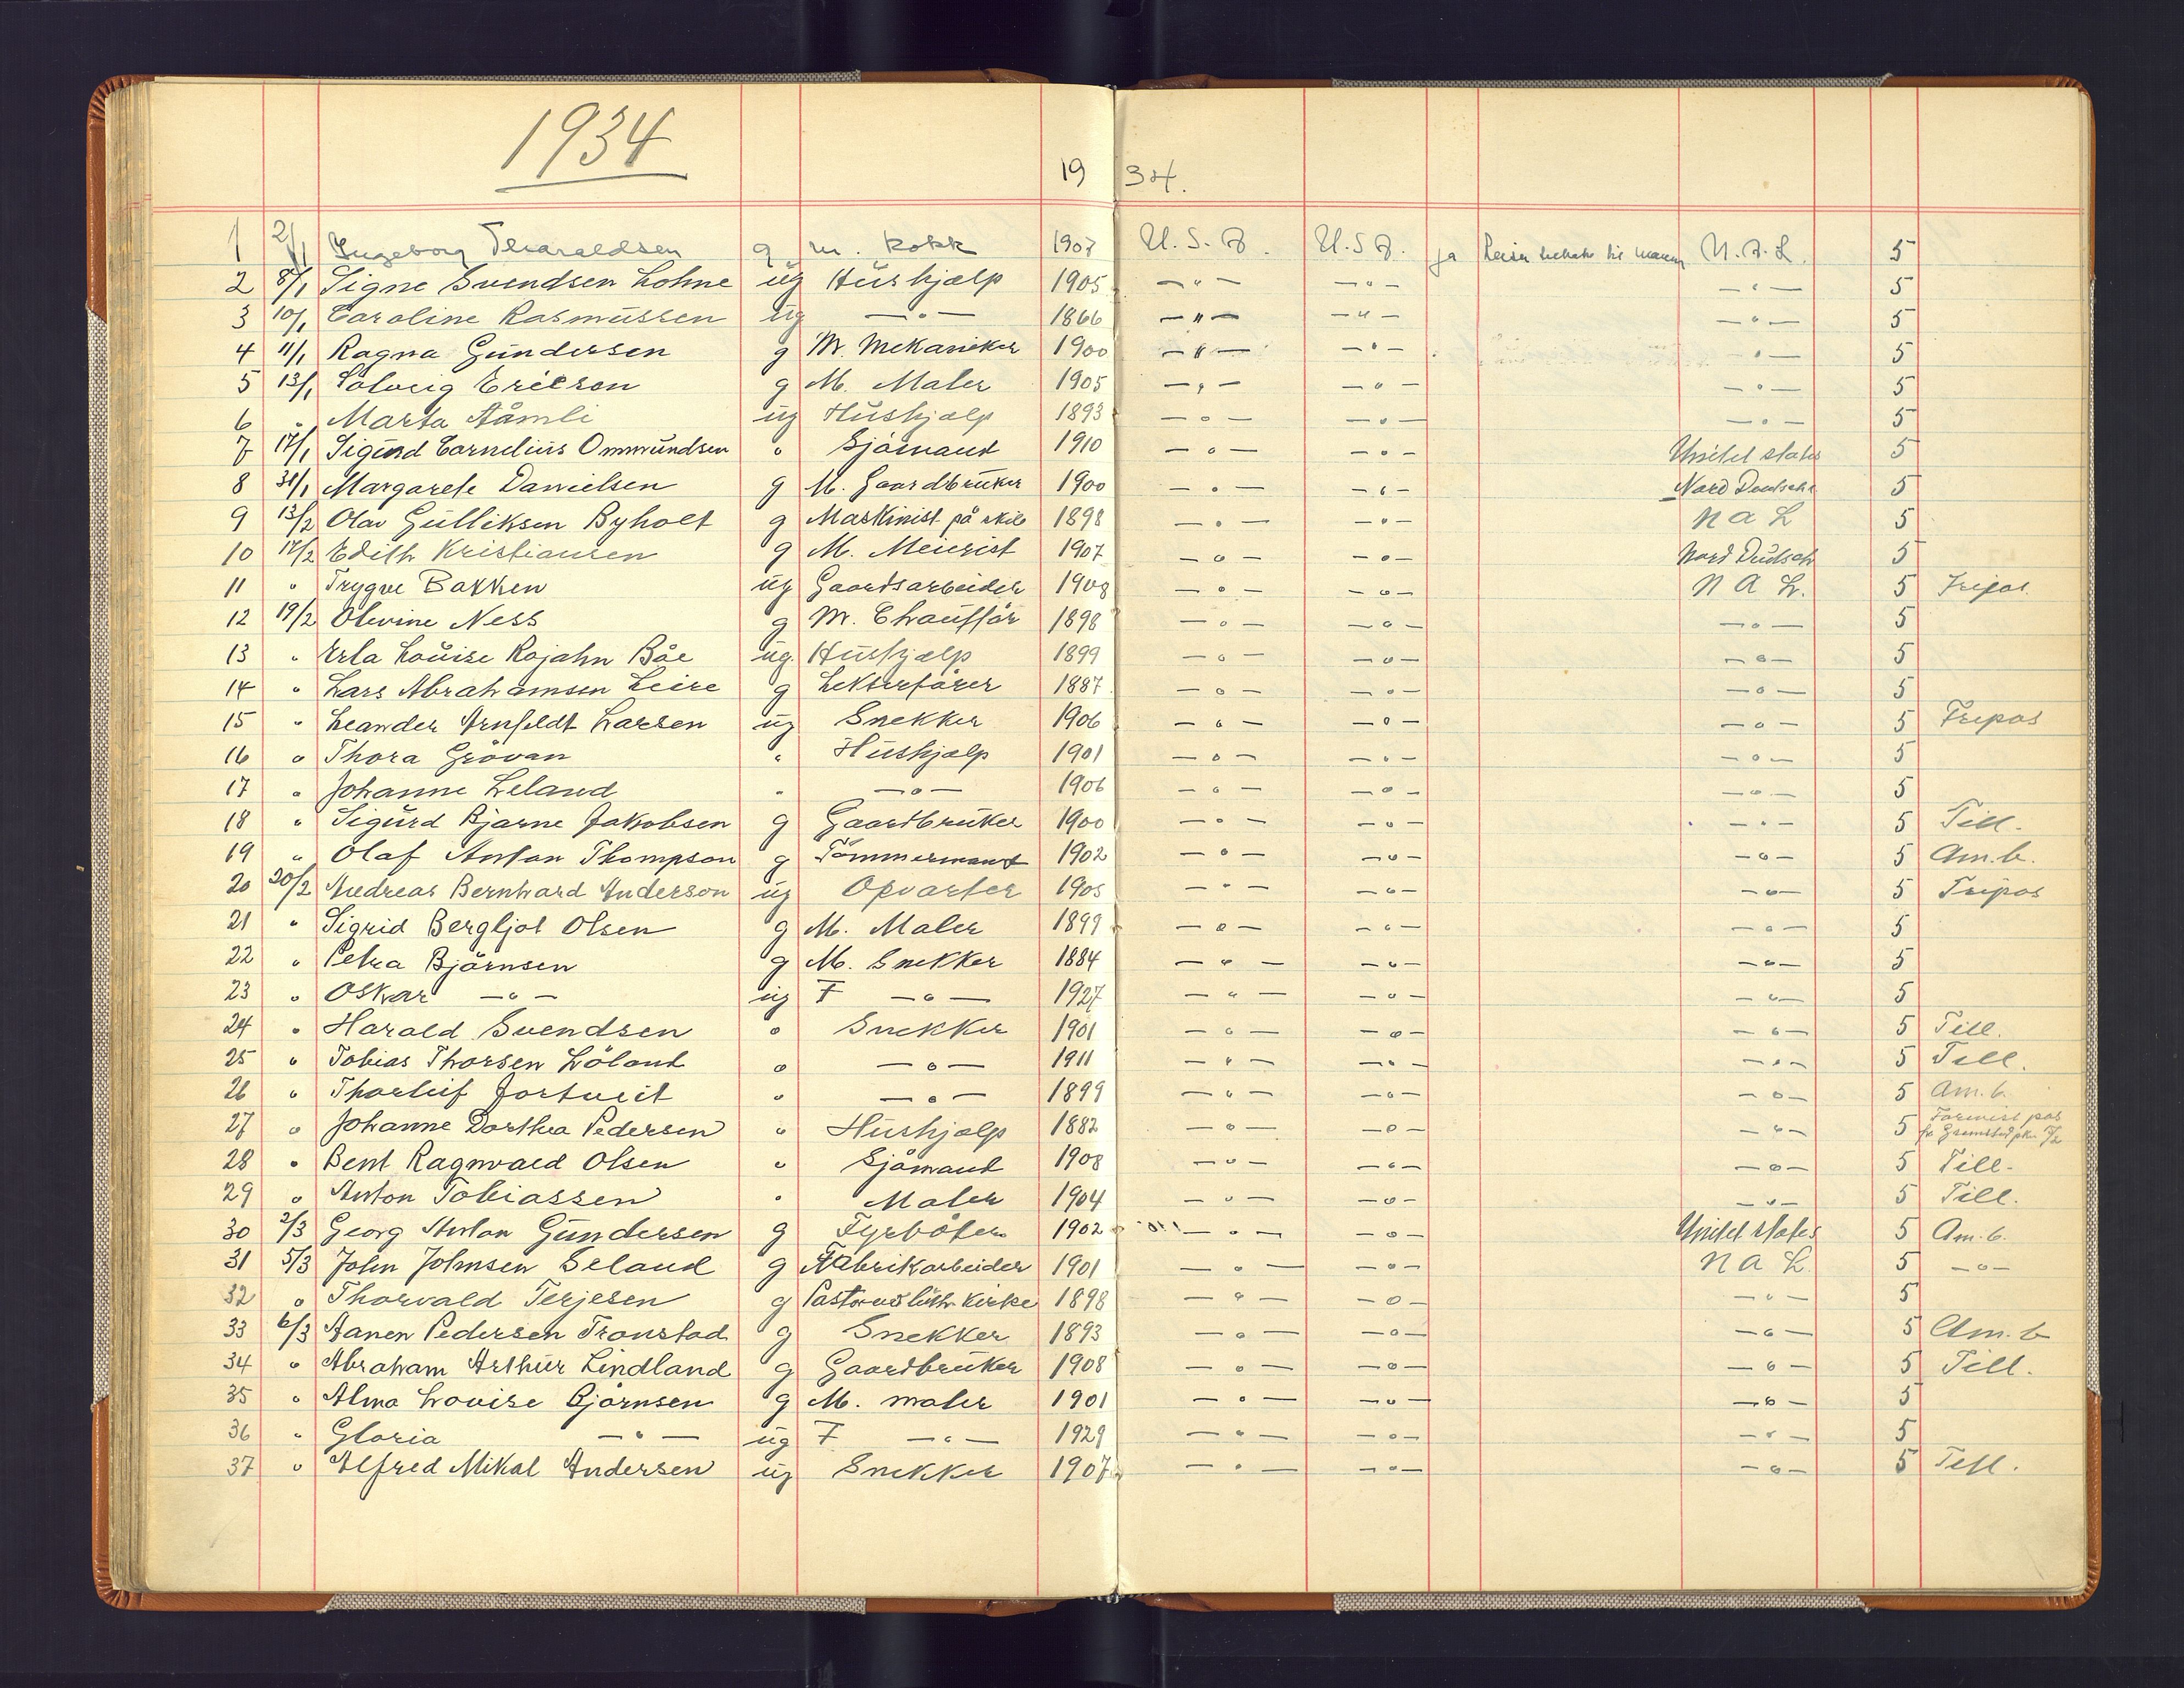 1934
19 34.
1 2/1 Ingeborg Tharaldsen g m. kokk 1907 U.S.A. U.S.A. ja Reiser tilbake til mannen N.A.L. 5
2 8/1 Signe Svendsen Lohne ug Hushjælp 1905 — " — — " — — " — 5
3 10/1 Caroline Rasmussen ug — " — 1866 — " — — " — — " — 5
4 11/1 Ragna Gundersen g M. Mekaniker 1900 — " — — " — — " — 5
5 13/1 Solveig Ericson g M. Maler 1905 — " — — " — — " — 5
6 " Marta Åmli ug Hushjælp 1893 — " — — " — — " — 5
7 17/1 Sigurd Cornelius Ommundsen " Sjømand 1910 — " — — " — United states 5
8 31/1 Margarete Danielsen g M. Gaardbruker 1900 — " — — " — Nord Deutsche 5
9 13/2 Olav Gulliksen Byholt g Maskinist på skib 1898 — " — — " — N A L 5
10 17/2 Edith Kristiansen g M. Meierist 1907 — " — — " — Nord Deutsch 5
11 " Trygve Bakken ug Gaardsarbeider 1908 — " — — " — N A L. 5 Fripas
12 19/2 Olevine Ness g M. Chauffør 1898 — " — — " — — " — 5
13 " Erla Louise Rojahn Båe ug. Hushjælp 1899 — " — — " — — " — 5
14 " Lars Abrahamsen Leire g Lekterfører 1887 — " — — " — — " — 5
15 " Leander Arnfeldt Larsen ug Snekker 1906 — " — — " — — " — 5 Fripas
16 " Thora Grövan " Hushjælp 1901 — " — — " — — " — 5
17 " Johanne Leland " — " — 1906 — " — — " — — " — 5
18 " Sigurd Bjarne Jakobsen g Gaardbruker 1900 — " — — " — — " — 5 Till.
19 " Olaf Anton Thompson g Tömmermand 1902 — " — — " — — " — 5 Am.b.
20 20/2 Andreas Bernhard Anderson ug Opvarter 1905 — " — — " — — " — 5 Fripas
21 " Sigrid Bergljot Olsen g M. Maler 1899 — " — — " — — " — 5
22 " Petra Björnsen g M. Snekker 1884 — " — — " — — " — 5
23 " Oskar — " — ug F — " — 1927 — " — — " — — " — 5
24 " Harald Svendsen " Snekker 1901 — " — — " — — " — 5 Till.
25 " Tobias Thorsen Löland " — " — 1911 — " — — " — — " — 5 Till.
26 " Thorleif Jortveit " — " — 1899 — " — — " — — " — 5 Am.b.
27 " Johanne Dorthea Pedersen " Hushjælp 1882 — " — — " — — " — 5 fr. Grimstad
28 " Bent Ragnvald Olsen " Sjömand 1908 — " — — " — — " — 5 Till.
29 " Anton Tobiassen " Maler 1904 — " — — " — — " — 5 Till.
30 2/3 Georg Anton Gundersen g Fyrböter 1902 — " — — " — United states 5 Am.b.
31 5/3 John Johnsen Seland g Fabrikarbeider 1901 — " — — " — N A L. 5 — " —
32 " Thorvald Terjesen g Pastor luth. kirke 1898 — " — — " — — " — 5
33 6/3 Aanen Pedersen Tronstad g Snekker 1893 — " — — " — — " — 5 Am.b
34 " Abraham Arthur Lindland g Gaardbruker 1908 — " — — " — — " — 5 Till.
35 " Alma Lovise Björnsen g M. maler 1901 — " — — " — — " — 5
36 " Gloria — " — ug F — " — 1929 — " — — " — — " — 5
37 " Alfred Mikal Andersen ug Snekker 1907 — " — — " — — " — 5 Till.